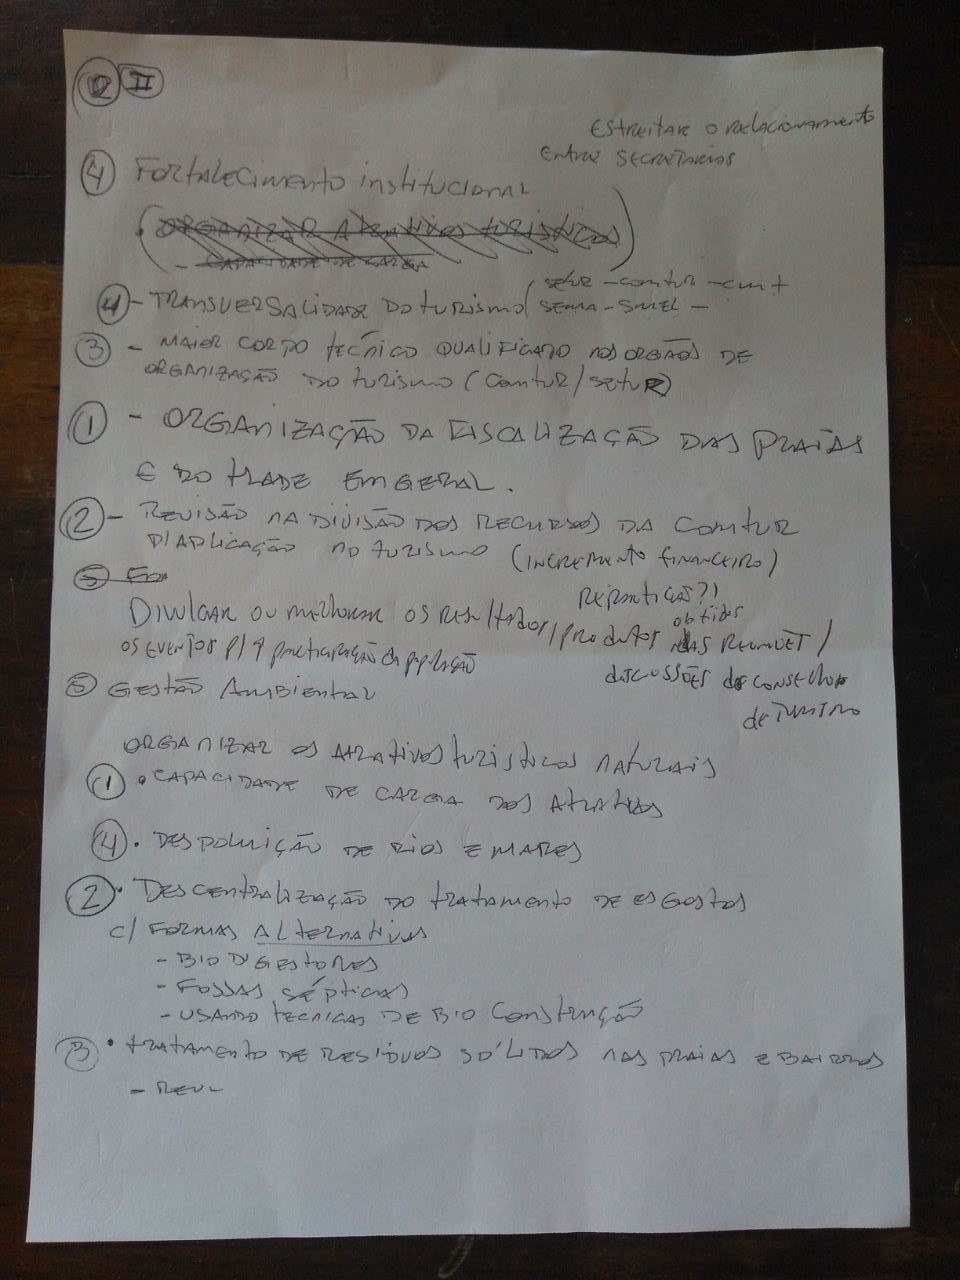 II
ESTREITAR O RELACIONAMENTO
ENTRE SECRETARIAS
4 FORTALECIMENTO INSTITUCIONAL
• ORGANIZAR ATRATIVOS TURÍSTICOS
- CAPACIDADE DE CARGA
4 - TRANSVERSALIDADE DO TURISMO ( SETUR - COMTUR - CMT
SEMA - SMEL -
3 - MAIOR CORPO TÉCNICO QUALIFICADO NOS ORGÃOS DE
ORGANIZAÇÃO DO TURISMO (COMTUR/SETUR)
1 - ORGANIZAÇÃO DA FISCALIZAÇÃO DAS PRAIAS
E DO TRADE EM GERAL.
2 - REVISÃO NA DIVISÃO DOS RECURSOS DA COMTUR
P/ APLICAÇÃO NO TURISMO (INCREMENTO FINANCEIRO)
5
DIVULGAR OU MELHORAR OS RESULTADOS/PRODUTOS obtidos NAS /
OS EVENTOS P/ ↑ participação da população
DISCUSSÕES do CONSELHO
de TURISMO
5 GESTÃO AMBIENTAL
ORGANIZAR OS ATRATIVOS TURISTICOS NATURAIS
1 • CAPACIDADE DE CARGA DOS ATRATIVOS
4 • DESPOLUIÇÃO DE RIOS E MARES
2 • DESCENTRALIZAÇÃO DO TRATAMENTO DE ESGOTOS
C/ FORMAS ALTERNATIVAS
- BIO DIGESTORES
- FOSSAS SÉPTICAS
- USANDO TECNICAS DE BIO CONSTRUÇÃO
3 • TRATAMENTO DE RESÍDUOS SÓLIDOS NAS PRAIAS E BAIRROS